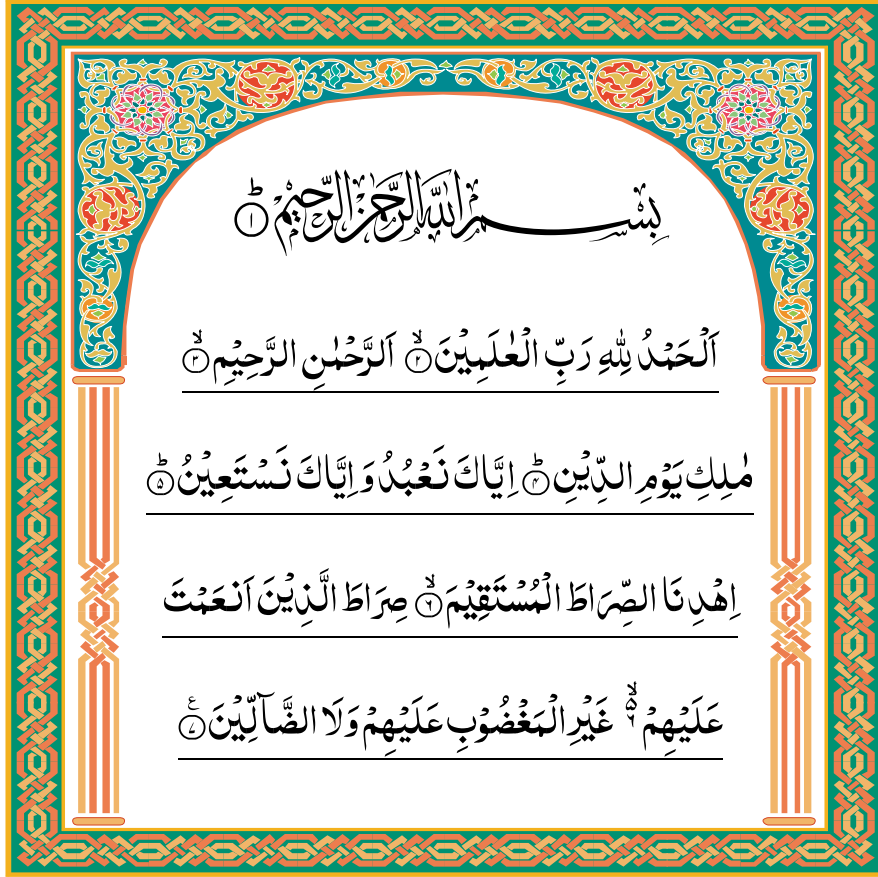 بِسْمِ اللهِ الرَّحْمٰنِ الرَّحِيْمِ ؕ﴿۱﴾
اَلْحَمْدُ لِلّٰهِ رَبِّ الْعٰلَمِيْنَ ۙ﴿۲﴾ اَلرَّحْمٰنِ الرَّحِيْمِ ۙ﴿۳﴾
مٰلِكِ يَوْمِ الدِّيْنِ ؕ﴿۴﴾ اِيَّاكَ نَعْبُدُ وَ اِيَّاكَ نَسْتَعِيْنُ ؕ﴿۵﴾
اِهْدِنَا الصِّرَاطَ الْمُسْتَقِيْمَ ۙ﴿۶﴾ صِرَاطَ الَّذِيْنَ اَنْعَمْتَ
عَلَيْهِمْ ۙ۬ غَيْرِ الْمَغْضُوْبِ عَلَيْهِمْ وَلَا الضَّآلِّيْنَ ﴿۷﴾ع